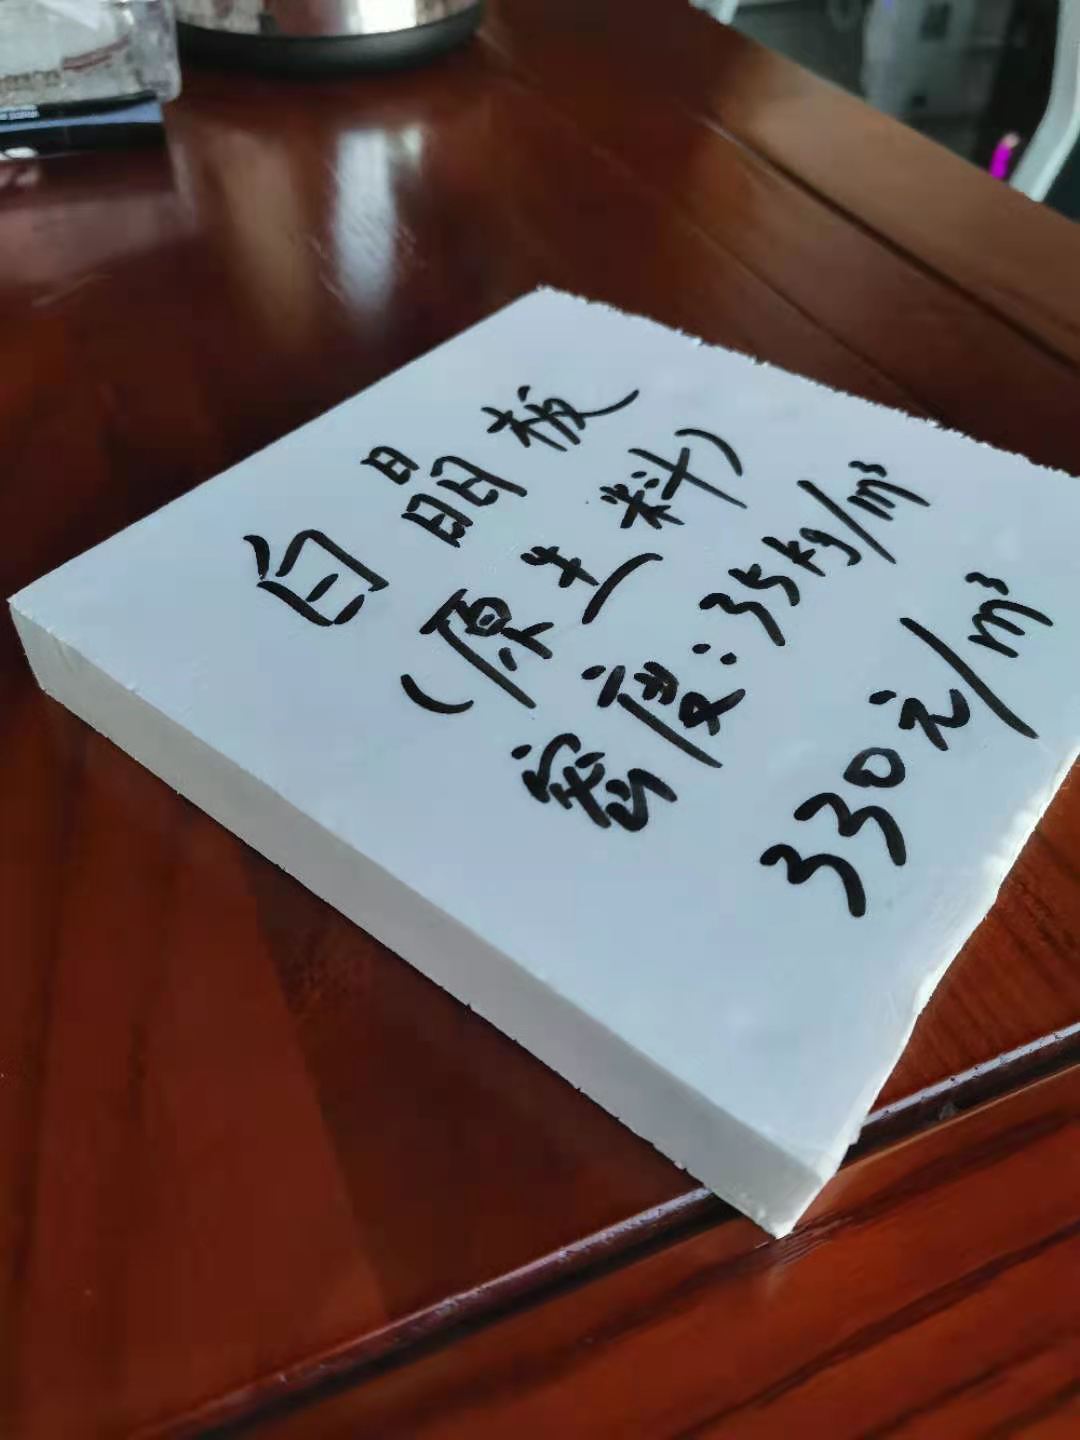 白晶板
（原生料）
密度:35kg/m³
330元/m³